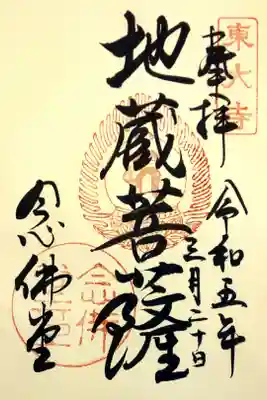 東大寺
奉拝
令和五年
三月二十日
地蔵菩薩
念佛堂
念佛